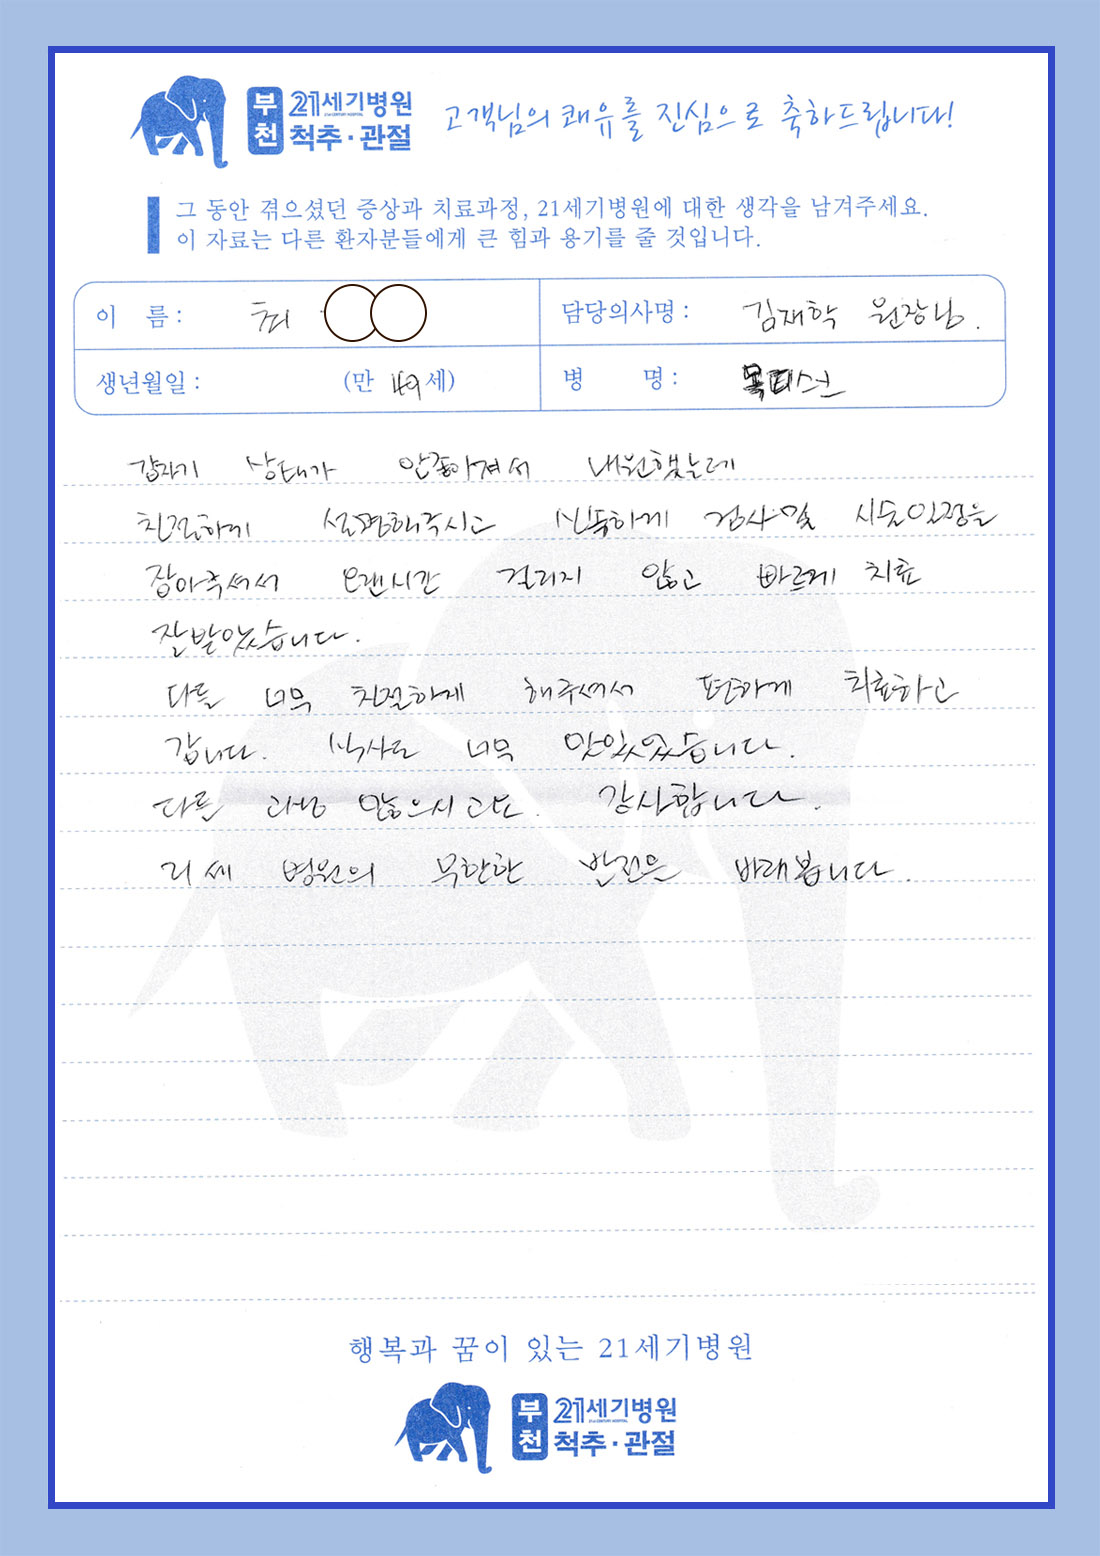 부천 21세기병원 척추·관절
21ST CENTURY HOSPITAL
고객님의 쾌유를 진심으로 축하드립니다!
그 동안 겪으셨던 증상과 치료과정, 21세기병원에 대한 생각을 남겨주세요.
이 자료는 다른 환자분들에게 큰 힘과 용기를 줄 것입니다.
이 름 : 최
담당의사명 : 김재학 원장님.
생년월일 : (만 49세)
병 명 : 목디스크
갑자기 상태가 안좋아져서 내원했는데
친절하게 설명해주시고 신속하게 검사및 시술일정을
잡아주셔서 오랜시간 걸리지 않고 빠르게 치료
잘받았습니다.
다들 너무 친절하게 해주셔서 편하게 치료하고
갑니다. 식사도 너무 맛있었습니다.
다들 고생 많으시고요. 감사합니다.
병원의 무한한 발전을 바래봅니다.
행복과 꿈이 있는 21세기병원
부천 21세기병원 척추·관절
21ST CENTURY HOSPITAL